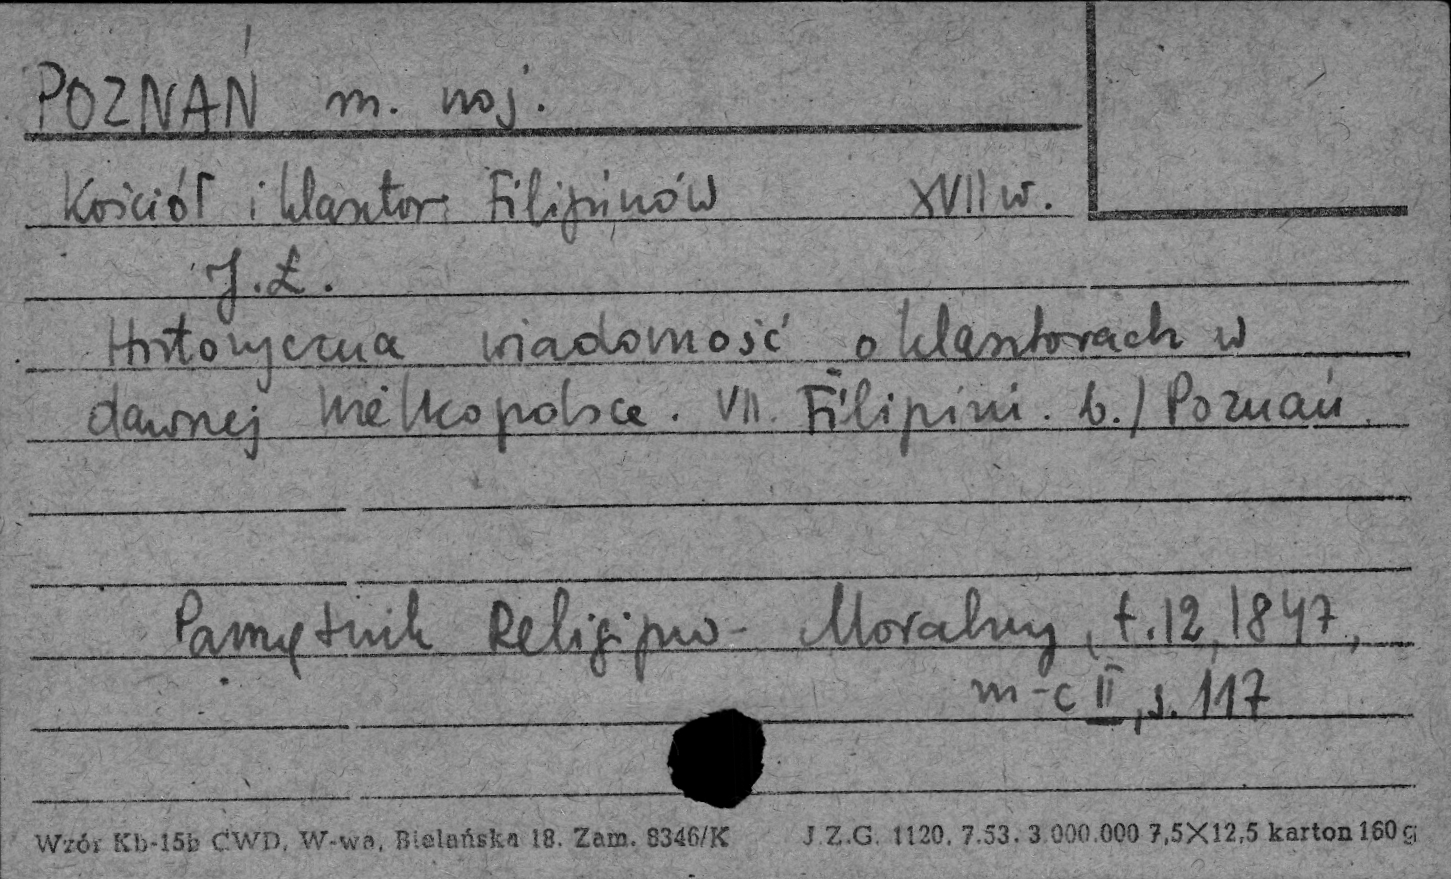 POZNAŃ m. woj.
Kościół i klasztor Filipinów XVII w.
J.Ł.
Historyczna wiadomość o klasztorach w
dawnej Wielkopolsce. VII. Filipini. b./ Poznań.
Pamiętnik Religijno-Moralny, t.12, 1847,
m-c II, s. 117
Wzór Kb-15b CWD, W-wa, Bielańska 18. Zam. 8346/K J.Z.G. 1120. 7.53. 3.000.000 7,5×12,5 karton 160 g